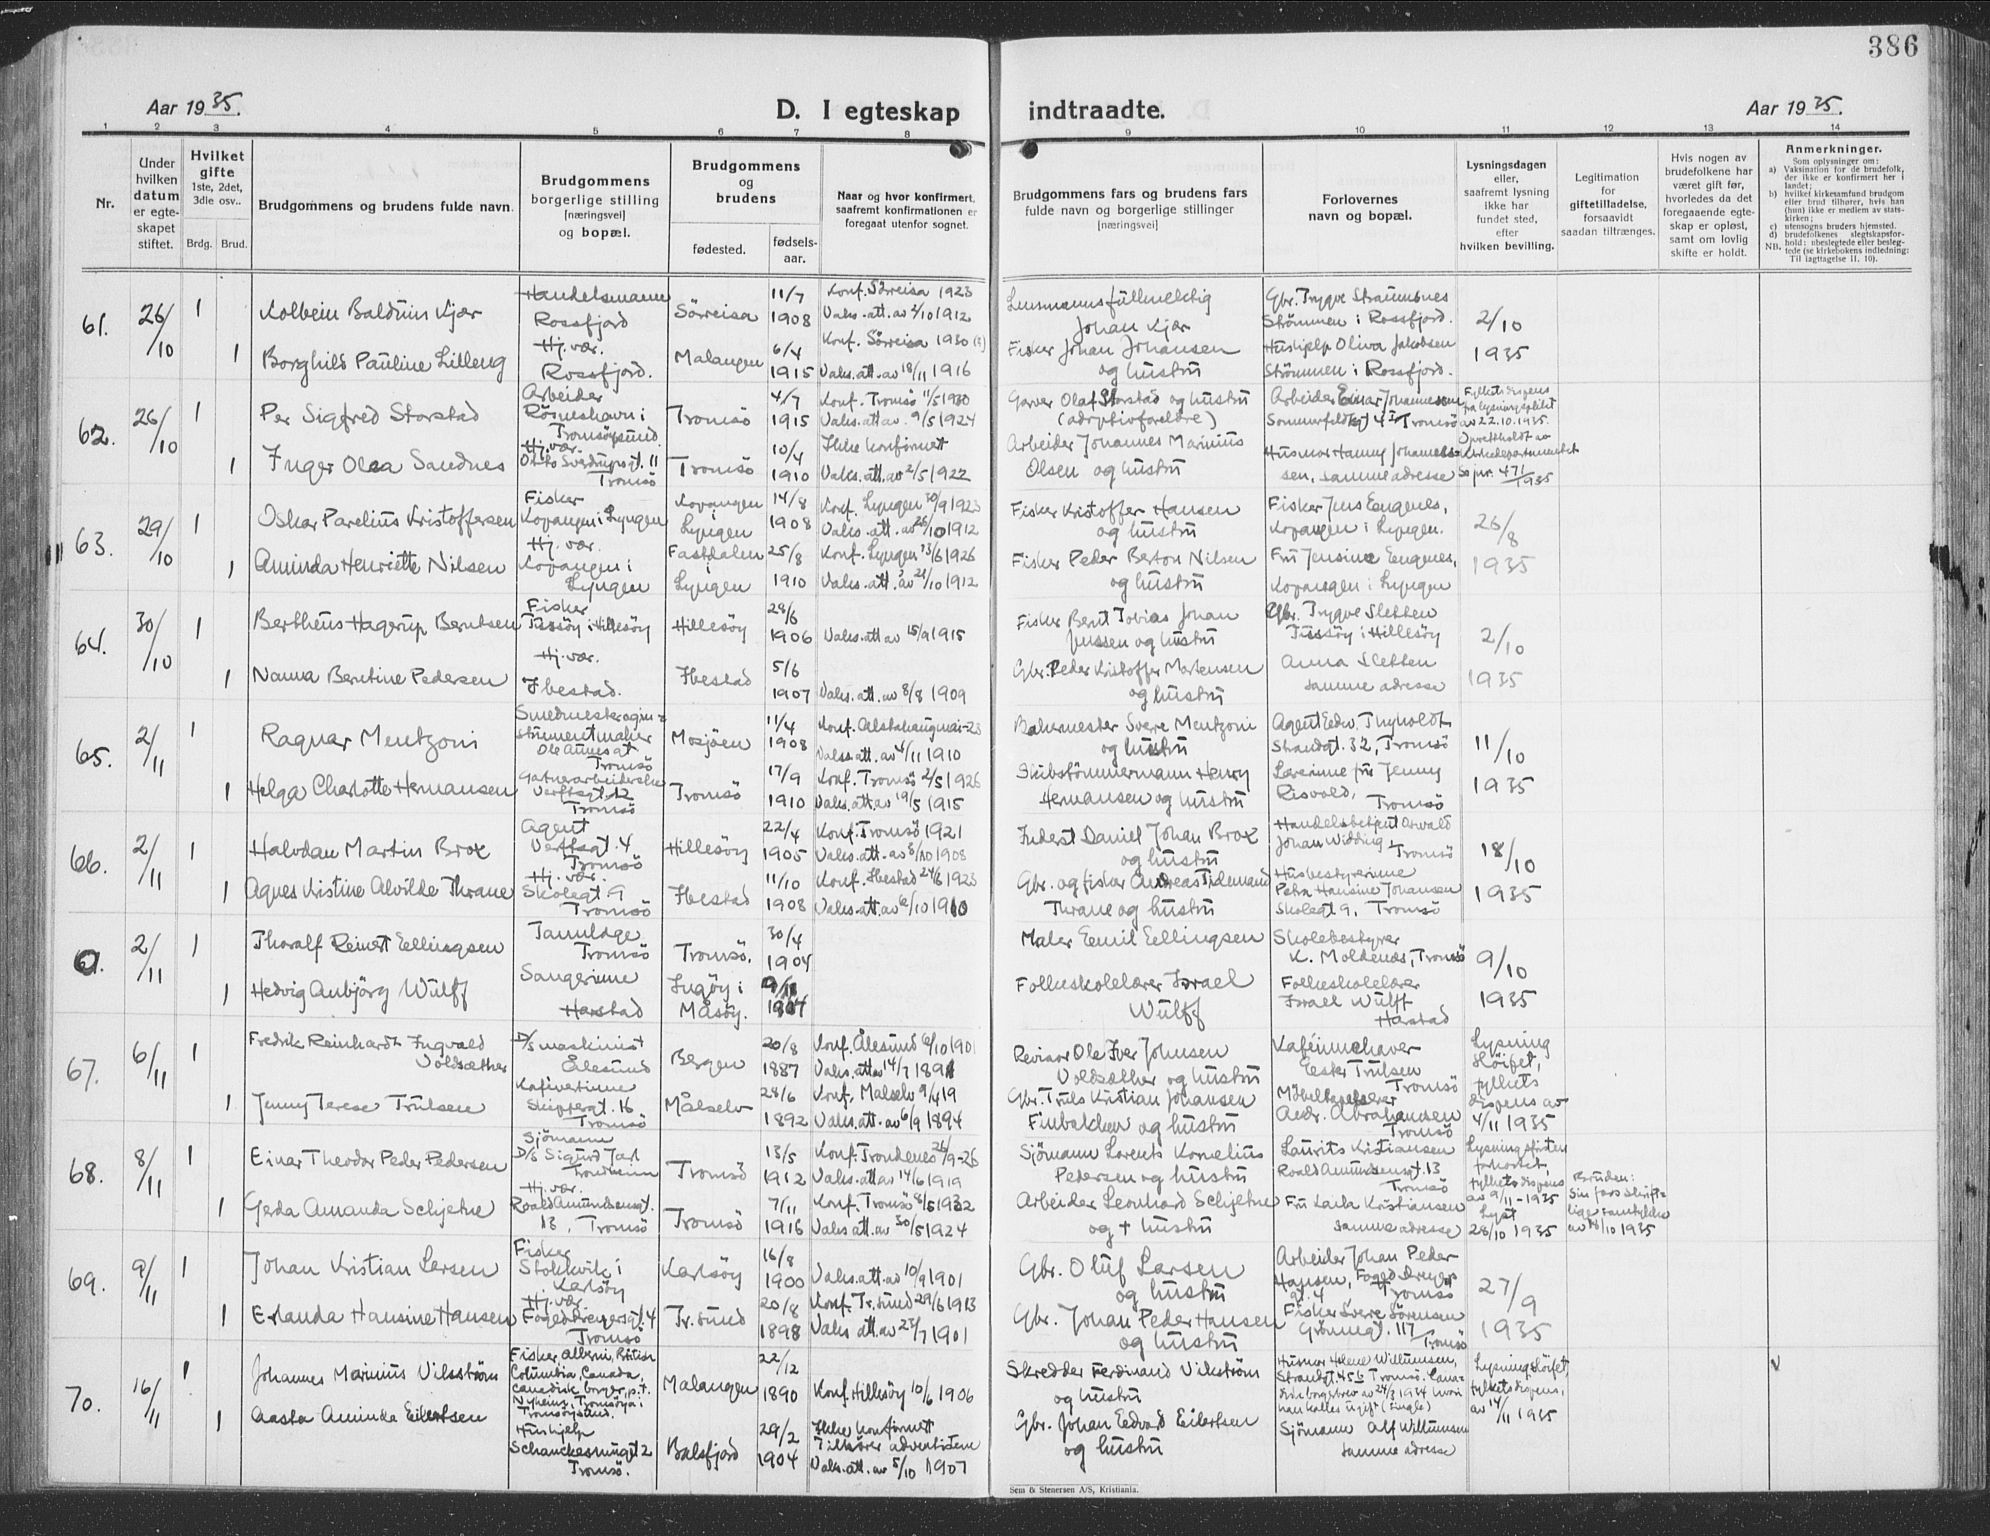 386
Aar 1935.
D. I egteskap indtraadte.
Aar 1935.
1 2 3 4 5 6 7 8 9 10 11 12 13 14
Nr.
Under hvilken datum er egteskapet stiftet.
Hvilket gifte
1ste, 2det, 3die osv..
Brdg. Brud.
Brudgommens og brudens fulde navn.
Brudgommens borgerlige stilling [næringsvei] og bopæl.
Brudgommens og brudens
fødested.
fødselsaar.
Naar og hvor konfirmert, saafremt konfirmationen er foregaat utenfor sognet.
Brudgommens fars og brudens fars fulde navn og borgerlige stillinger [næringsvei]
Forlovernes navn og bopæl.
Lysningsdagen eller, saafremt lysning ikke har fundet sted, efter hvilken bevilling.
Legitimation for giftetilladelse, forsaavidt saadan tiltrænges.
Hvis nogen av brudefolkene har været gift før, hvorledes da det foregaaende egteskap er opløst, samt om lovlig skifte er holdt.
Anmerkninger.
Som oplysninger om:
a) Vaksination for de brudefolk, der ikke er konfirmert her i landet;
b) hvilket kirkesamfund brudgom eller brud tilhører, hvis han (hun) ikke er medlem av statskirken;
c) utensogns bruders hjemsted.
d) brudefolkenes slegtskapsforhold: ubeslegtede eller beslegtede (se kirkebokens indledning:
NB. Til iagttagelse II. 10).
61. 26/10 1
Kolbein Balduin Kjær
Handelsmann
Rossfjord
Sörreisa
11/7 1908
Konf. Sörreisa 1923
Vaks. att. av 2/10 1912
Lensmannsfullmektig
Johan Kjær
Gbr. Trygve Straumsnes
Strömmen i Rossfjord.
2/10 1935
1
Borghild Pauline Lilleng
Hj. vær.
Rossfjord.
Malangen
6/4 1915
Konf. Sörreisa 1930
Vaks. att. av 18/11 1916
Fisker Johan Johansen
og hustru
Hushjelp Oliva Jakobsen
Strömmen i Rossfjord.
62. 26/10 1
Per Sigfred Storstad
Arbeider
Tromsöysund.
Tromsö
4/7 1915
Konf. Tromsö 11/5 1930
Vaks. att. av 9/5 1924
Garver Olaf Storstad og hustru
(adoptivforeldre)
Arbeider Einar Johannessen
Sommerfeldtsgt 4 I Tromsö
Fylkets dispens
fra lysningsplikt
av 22.10.1935.
1
Inger Olea Sandnes
Hj. vær.
Otto Sverdrupsgt. 11
Tromsö
Tromsö
10/4 1910
Ikke konfirmert
Vaks. att. av 2/5 1922
Arbeider Johannes Marinius
Olsen og hustru
Husmor Hanny Johannes-
sen, samme adresse
Oprettholdt av
Kirkedepartementet
63. 29/10 1
Oskar Parelius Kristoffersen
Fisker
Kopangen i Lyngen
Kopangen
Lyngen
14/8 1908
Konf. Lyngen 30/9 1923
Vaks. att. av 26/10 1912
Fisker Kristoffer Hansen
og hustru
Fisker Jens Engenes,
Kopangen i Lyngen.
26/8 1935
1
Aminda Henriette Nilsen
Hj. vær.
Kopangen i
Lyngen
Fastdalen
Lyngen
25/8 1910
Konf. Lyngen 13/6 1926
Vaks. att. av 21/10 1912
Fisker Peder Berton Nilsen
og hustru
Fru Jensine Engenes,
Kopangen i Lyngen
64. 30/10 1
Bertheus Hagerup Berntsen
Fisker
Tussöy i Hillesöy
Hillesöy
28/6 1906
Vaks. att av 15/9 1915
Fisker Bernt Tobias Johan
Jenssen og hustru
Gbr. Trygve Sletten
Tussöy i Hillesöy
2/10 1935
1
Nanna Berntine Pedersen
Hj. vær.
Ibestad.
Ibestad
5/6 1907
Vaks. att av 8/8 1909
Gbr. Peder Kristoffer Mortensen
og hustru
Anna Sletten
samme adresse
65. 2/11 1
Ragnar Mentzoni
Ole Aunes gt
Tromsö
Mosjöen
11/4 1908
Vaks. att. av 4/11 1910
Bakermester Sverre Mentzoni
og hustru
Agent Edv. Thyholdt
Strandgt. 32, Tromsö
11/10 1935
1
Helga Charlotte Hermansen
Verftsgt. 12
Tromsö
Tromsö
17/9 1910
Konf. Tromsö 2/5 1926
Vaks. att. av 19/5 1915
Skibstömmermann Henry
Hermansen og hustru
Lærerinne fru Jenny
Risvold,
Tromsö
66. 2/11 1
Halvdan Martin Brox
Agent
Verftsgt. 4
Tromsö
Hillesöy
22/4 1905
Konf. Tromsö 1921
Vaks. att. av 8/10 1908
Daniel Johan Brox
og hustru
Handelsbetjent Osvald
Johan Widding,
Tromsö
18/10 1935
1
Agnes Kristine Alvilde Thrane
Hj. vær.
Skolegt 9
Tromsö
Ibestad
11/10 1908
Konf. Ibestad 24/6 1923
Vaks. att. av 6/10 1910
Gbr. og fisker Andreas Tidemand
Thrane og hustru
Husbestyrerinne
Petra Hansine Johansen
Skolegt 9, Tromsö
2/11 1
Thoralf Reinert Eellingsen
Tannlæge
Tromsö
Tromsö.
30/4 1904
Maler Eemil Eellingsen
Skolebestyrer
K. Moldenæs, Tromsö
9/10 1935
1
Hedvig Anbjörg Wulff
Sangerinne
Harstad
Ingöy i
Måsöy.
Folkeskolelærer Israel
Wulff
Folkeskolelærer
Israel Wulff
Harstad
67. 6/11 1
Fredrik Reinhardt Ingvald
Voldsæther
D/s maskinist
Ålesund
Bergen
20/8 1887
Konf. Ålesund 6/10 1901
Vaks. att av 14/7 1891
Revisor Ole Iver Johnsen
Voldsæther og hustru
Kaféinnehaver
Trulsen
Tromsö
Lysning
slöifet,
fylkets
dispens av
4/11 1935
1
Jenny Terese Trulsen
Kafévertinne
Skippergt. 16
Tromsö
Målselv
28/6 1892
Konf. Målselv 9/4 19
Vaks. att. av 6/9 1894
Gbr. Truls Kristian Johansen
Finbakken og hustru
Möbelhandler
Andr. Abrahamsen
Tromsö
68. 8/11 1
Einar Theodor Peder Pedersen
Sjömann
D/s Sigurd Jarl
Trondheim
Tromsö
13/5 1912
Konf. Trondenes 26/9-26
Vaks. att av 14/6 1919
Sjömann Lorents Kornelius
Pedersen og hustru
Laurits Kristiansen
Roald Amundsensgt. 13
Tromsö
Lysningsfristen
forkortet,
fylkets dispens
av 9/11-1935
Lyst
28/10 1935
Bruden:
Sin fars skrift-
lige samtykke
av 28/10 1935
1
Gerda Amanda Schjetne
Hj. vær.
Roald Amundsensgt.
13, Tromsö
Tromsö
7/11 1916
Konf. Tromsö 8/5 1932
Vaks. att. av 30/5 1924
Arbeider Leonhard Schjetne
og + hustru
Fru Karla Kristiansen
samme adresse
69. 9/11 1
Johan Kristian Larsen
Fisker
Stokkvik i
Karlsöy
Karlsöy
16/8 1900
Vaks. att. av 10/9 1901
Gbr. Oluf Larsen
og hustru
Arbeider Johan Peder
Hansen, Foged Dreyers
gt. 4 Tromsö
27/9 1935
1
Erlanda Hansine Hansen
Hj. vær
Foged Dreyersgt. 4
Tromsö
Tr. sund
20/8 1898
Konf. Tr. sund 29/6 1913
Vaks. att. av 23/7 1901
Gbr. Johan Peder Hansen
og hustru
Fisker Sverre Sörensen
Grönnegt. 117
Tromsö
70. 16/11 1
Johannes Marinius Vikström
Fisker, Alberni, British
Columbia, Canada,
canadisk borger, p.t.
Nyheim, Tromsöya i
Tromsöysund.
Malangen
22/12 1890
Konf. Hillesöy 10/6 1906
Skredder Ferdinand Vikström
og hustru
Husmor Helene Willumsen,
Strandgt. 45 b Tromsö. Cana-
disk borgerbrev av 24/3 1934 hvori
han kalles ugift (single)
Lysning slöifet,
fylkets dispens,
av 14/11 1935
1
Aasta Aminda Eilertsen
Hushjelp
Schanckesmugt 2
Tromsö.
Balsfjord
29/2 1904
Ikke konfirmert
Tilhörer adventistene
Vaks. att. av 5/10 1907
Gbr. Johan Edvard Eilertsen
og hustru
Sjömann Alf Willumsen
samme adresse
Sem & Stenersen A/S, Kristiania.